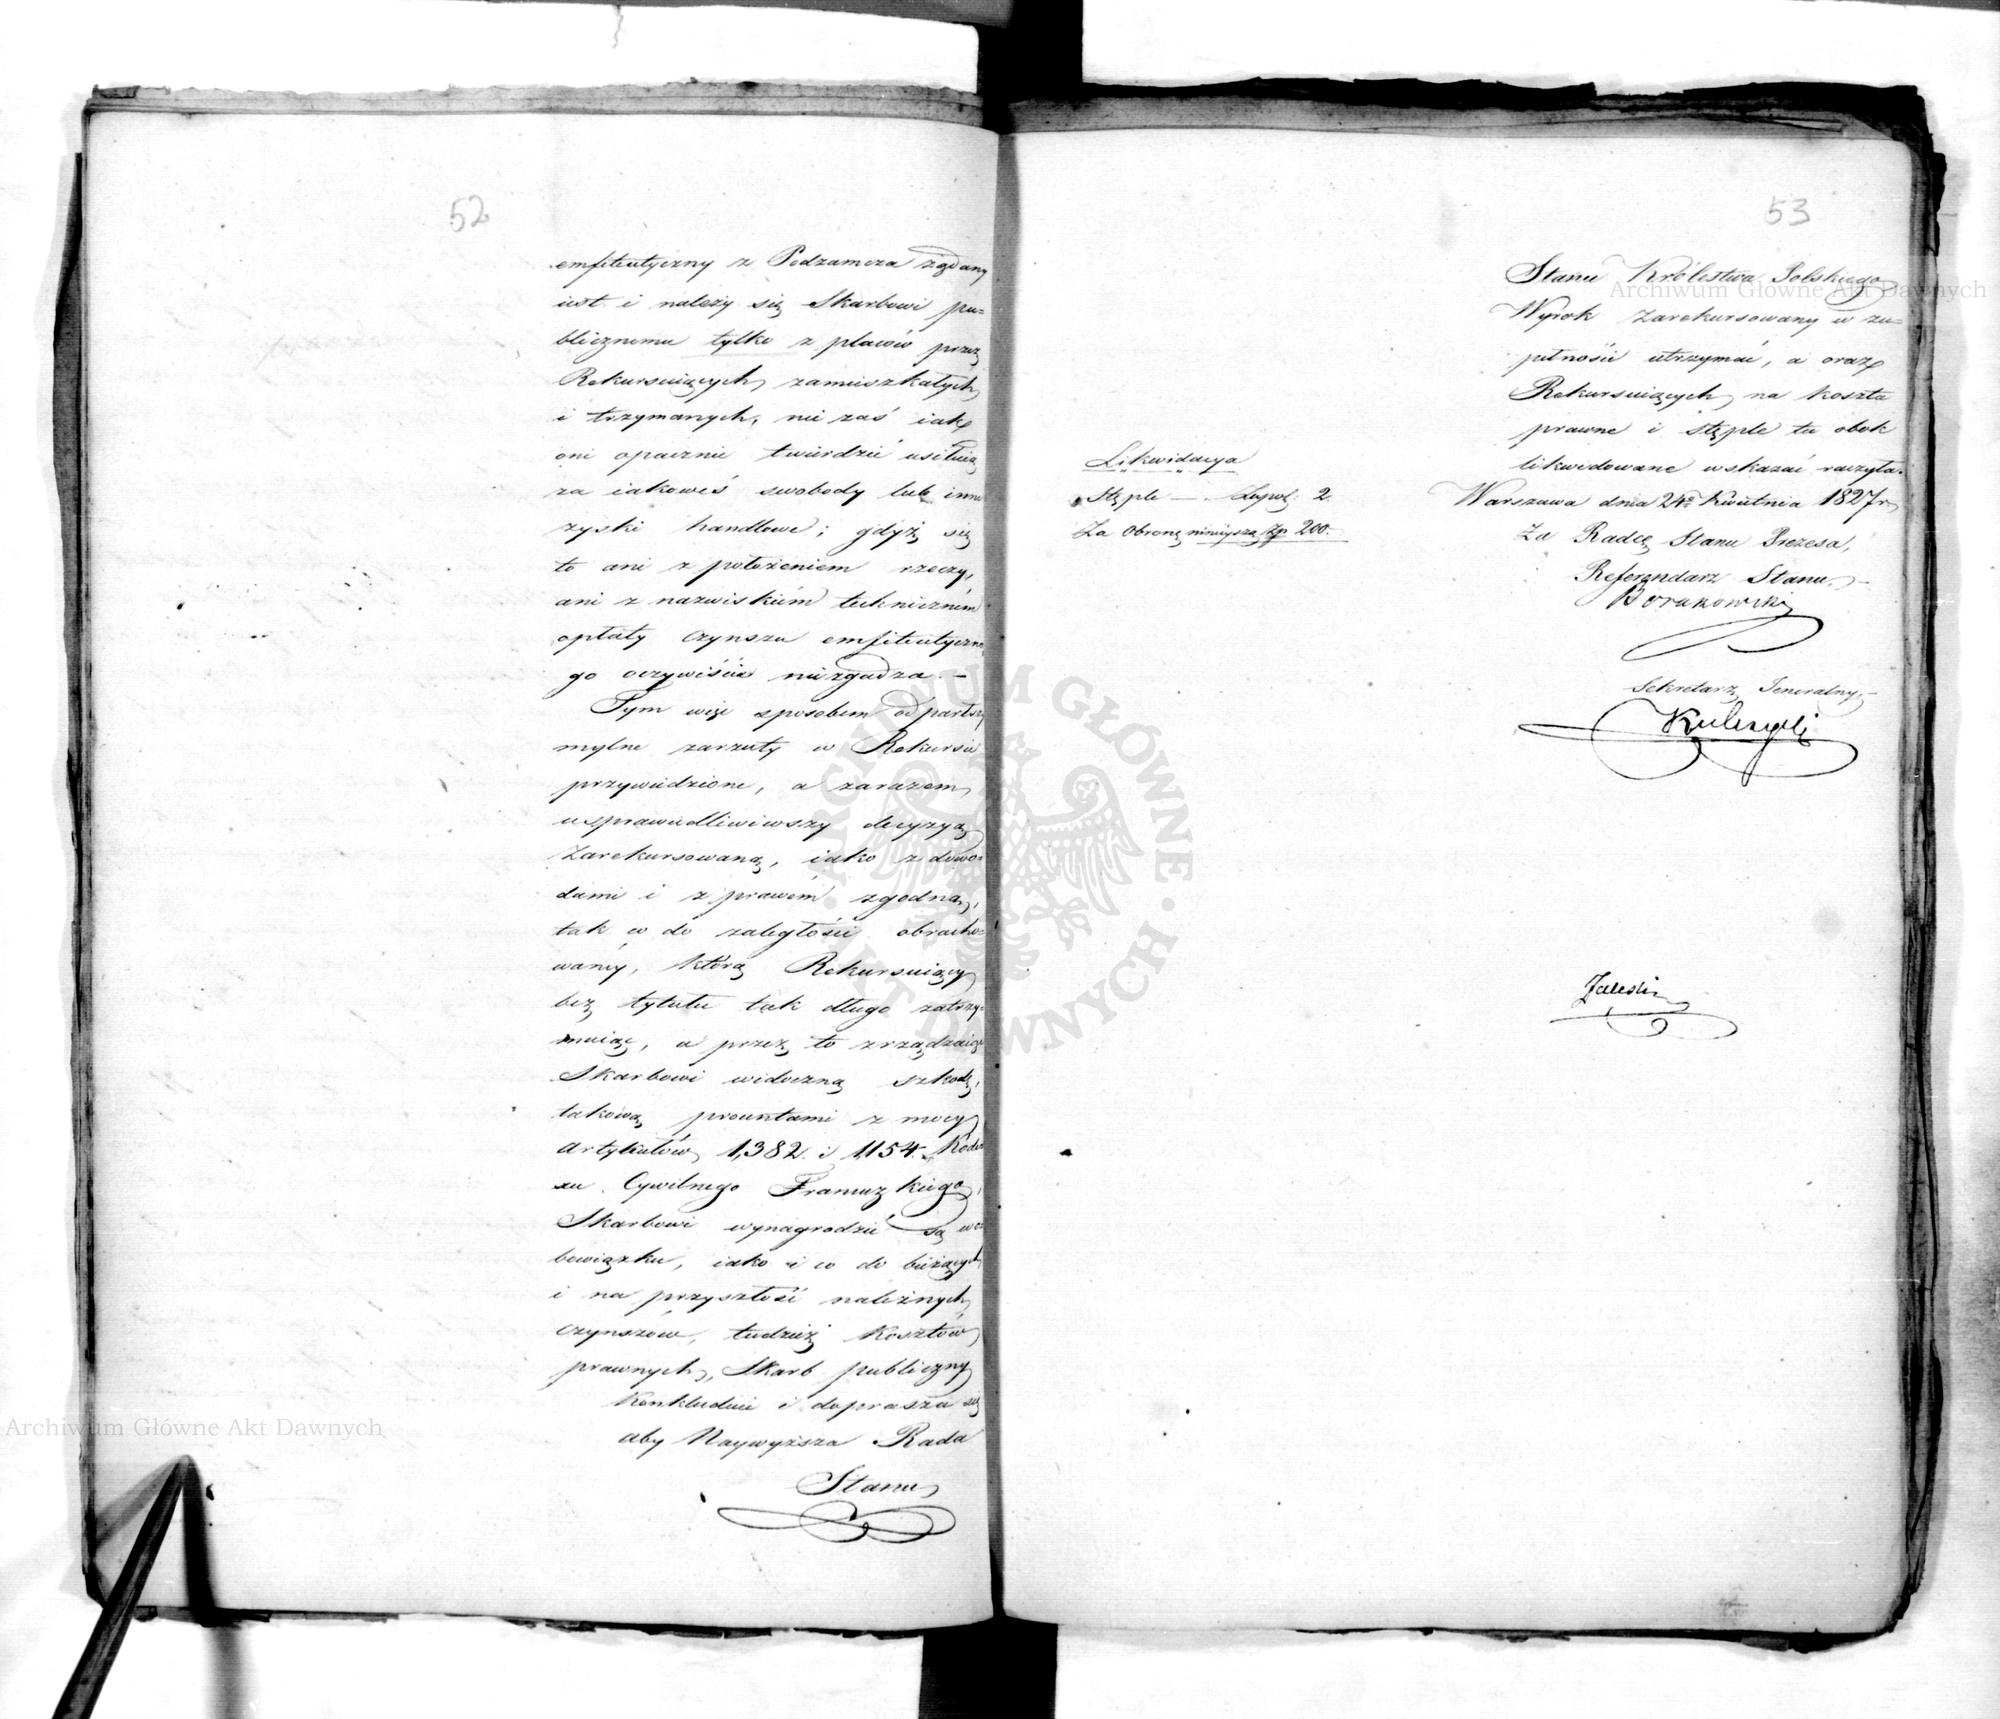 52
emfiteutyczny z Podzamcza żądany
iest i należy się Skarbowi pu-
blicznemu tylko z placów przez
Rekursuiących zamieszkałych
i trzymanych, nie zaś iak
oni opacznie twierdzić usiłuią
za iakoweś swobody lub inne
zyski handlowe; gdyż się
to ani z położeniem rzeczy,
ani z nazwiskiem technicznem
opłaty Czynszu emfiteutyczne-
go oczywiście niezgadza. –
Tym więc sposobem odpartszy
mylne zarzuty w Rekursie
przywiedzione, a zarazem
usprawiedliwiwszy decyzyą
Zarekursowaną, iako z dowo-
dami i z prawem zgodną,
tak co do zaległości obracho-
waney, którą Rekursuiący
bez tytułu tak długo zatrzy-
muiąc, a przez to zrządzaiąc
Skarbowi widoczną szkodę,
takową procentami z mocy
Artykułów 1,382. i 1154. Kode-
xu Cywilnego Francuzkiego,
Skarbowi wynagrodzić są w o-
bowiązku, iako i co do bieżących
i na przyszłość należnych
czynszów, tudzież Kosztów
prawnych, Skarb publiczny
Konkluduie i doprasza się
aby Naywyższa Rada
Stanu
53
Stanu Królestwa Polskiego
Wyrok Zarekursowany w zu-
pełności utrzymać, a oraz
Rekursuiących na koszta
prawne i stęple tu obok
likwidowane wskazać raczyła.
Warszawa dnia 24º Kwietnia 1827 r
Za Radcę Stanu Prezesa,
Referendarz Stanu. –
Borakowski
Sekretarz Jeneralny –
Likwidacya
Stęple – . Złpol: 2.
Za Obronę ninieyszą Zp 200.
Zaleski
Archiwum Główne Akt Dawnych
Archiwum Główne Akt Dawnych
ARCHIWUM GŁÓWNE · AKT DAWNYCH ·